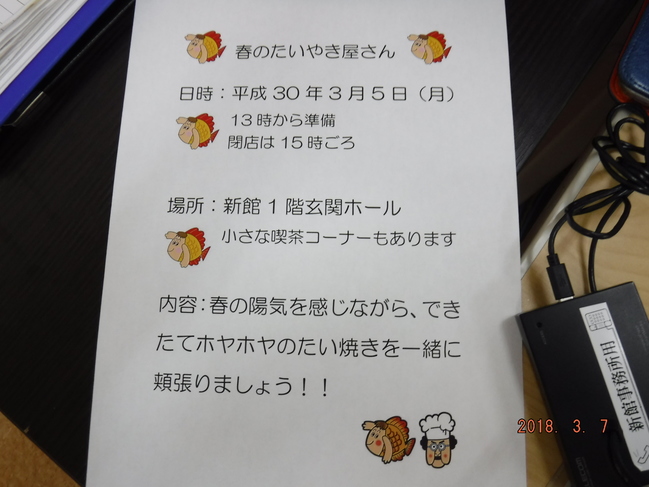 春のたいやき屋さん
日時：平成30年3月5日（月）
13時から準備
閉店は15時ごろ
場所：新館1階玄関ホール
小さな喫茶コーナーもあります
内容：春の陽気を感じながら、でき
たてホヤホヤのたい焼きを一緒に
頬張りましょう！！
新館事務所用
2018. 3. 7